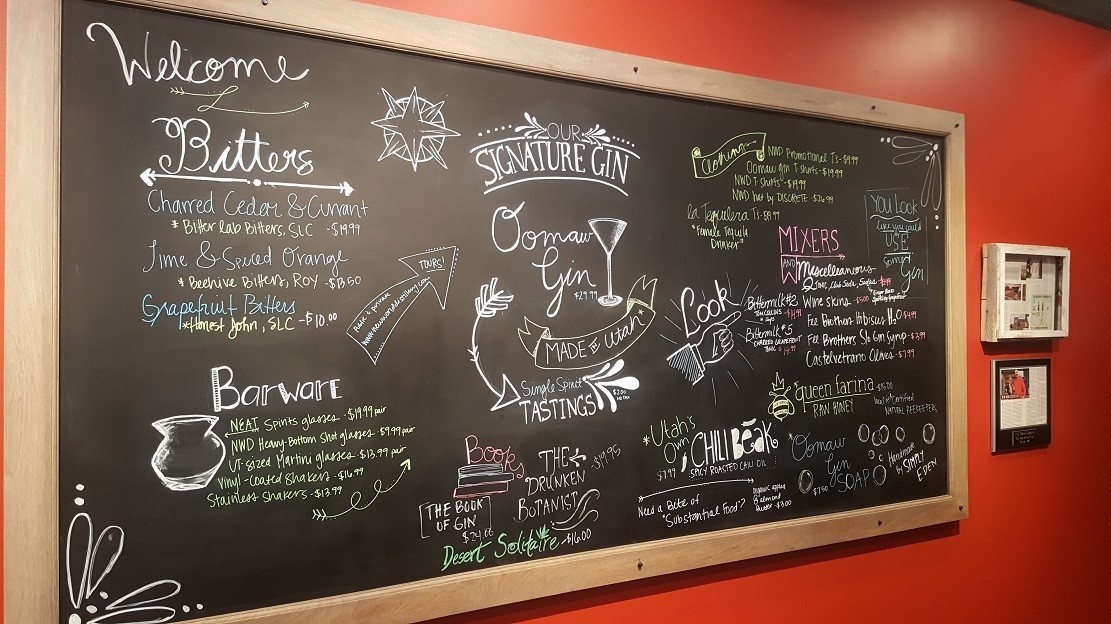 Welcome
Bitters
Charred Cedar & Currant
* Bitter Lab Bitters, SLC - $19.99
Lime & Spiced Orange
* Beehive Bitters, Roy - $13.50
Grapefruit Bitters
* Honest John, SLC - $10.00
Barware
NEAT Spirits glasses - $19.99 pair
NWD Heavy-Bottom Shot glasses - $9.99 pair
UT-sized Martini glasses - $13.99 pair
Vinyl-Coated Shakers - $16.99
Stainless Shakers - $13.99
TOURS!
Public & private
OUR
SIGNATURE GIN
Oomaw
Gin
$29.99
MADE IN Utah*
Single Spirit
TASTINGS
Books
THE BOOK
OF GIN
$24.00
THE
DRUNKEN
BOTANIST
- $19.95
Desert Solitaire - $16.00
Clothing
NWD Promotional Ts - $9.99
Oomaw gin T Shirts - $19.99
NWD T-Shirts - $19.99
NWD hat by DISCRETE - $26.99
la Tequilera Ts
"Female Tequila
Drinker"
YOU Look
like you could
USE
Some
Gin
Look
MIXERS
AND
Miscellaneous
Bittermilk #2
TOM COLLINS
Bittermilk #5
CHARRED GRAPEFRUIT
TONIC
Wine Skins - $5.00
Fee Brothers Hibiscus H2O
Fee Brothers Slo Gin Syrup - $3.99
Castelvetrano Olives - $7.99
*queen farina
RAW HONEY
NATURAL BEEKEEPERS
*Utah's
Own
CHILI BEAK
$7.99
SPICY ROASTED CHILI OIL
Need a Bite of
"Substantial Food"?
Butter - $3.00
*Oomaw
Gin
SOAP
$7.50
Handmade
by SIMPLY
EDEN